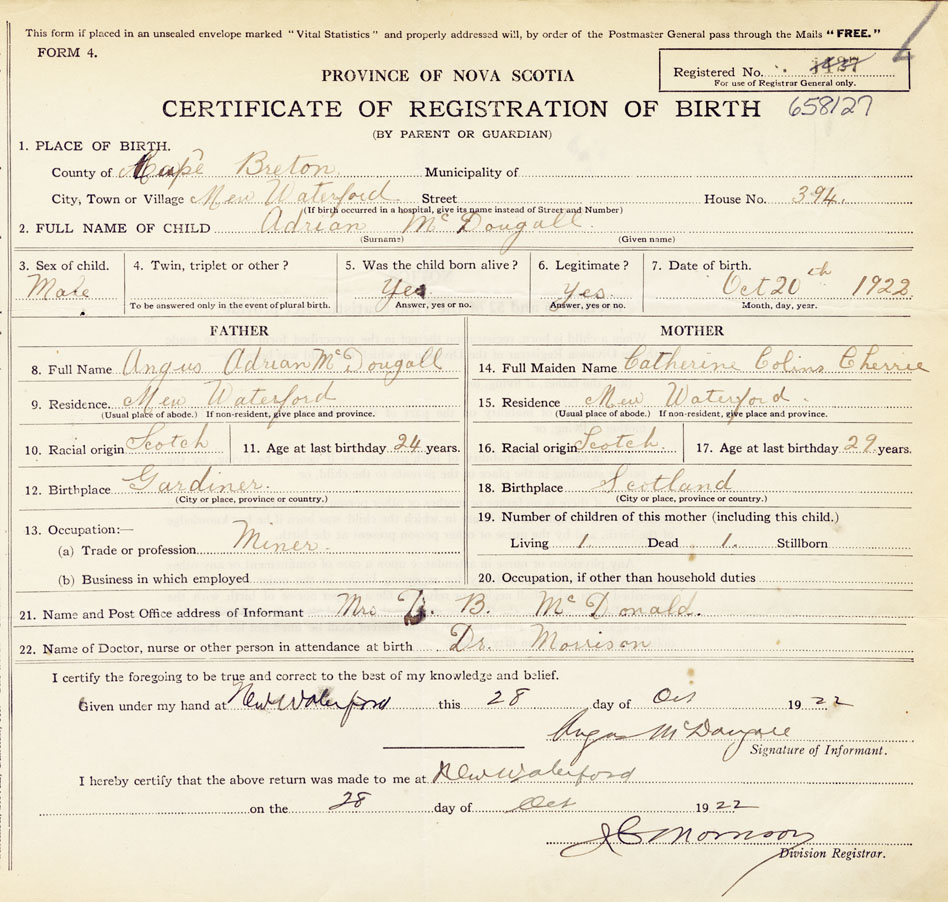 This form if placed in an unsealed envelope marked "Vital Statistics" and properly addressed will, by order of the Postmaster General pass through the Mails "FREE."
FORM 4.
Registered No.
For use of Registrar General only.
PROVINCE OF NOVA SCOTIA
CERTIFICATE OF REGISTRATION OF BIRTH 658127
(BY PARENT OR GUARDIAN)
1. PLACE OF BIRTH.
County of Cape Breton Municipality of
City, Town or Village New Waterford Street House No. 394.
(If birth occurred in a hospital, give its name instead of Street and Number)
2. FULL NAME OF CHILD Adrian McDougall.
(Surname) (Given name)
3. Sex of child. 4. Twin, triplet or other? 5. Was the child born alive? 6. Legitimate? 7. Date of birth.
Male Yes Yes. Oct 20th 1922
To be answered only in the event of plural birth. Answer, yes or no. Answer, yes or no. Month, day, year.
FATHER MOTHER
8. Full Name Angus Adrian McDougall 14. Full Maiden Name Catherine Colins Cherrie
9. Residence. New Waterford 15. Residence New Waterford.
(Usual place of abode.) If non-resident, give place and province. (Usual place of abode.) If non-resident, give place and province.
10. Racial origin Scotch 11. Age at last birthday 24 years. 16. Racial origin Scotch. 17. Age at last birthday 29 years.
12. Birthplace Gardiner. 18. Birthplace Scotland
(City or place, province or country.) (City or place, province or country.)
13. Occupation:— 19. Number of children of this mother (including this child.)
(a) Trade or profession Miner. Living 1. Dead 1. Stillborn
(b) Business in which employed 20. Occupation, if other than household duties
21. Name and Post Office address of Informant Mrs D. B. McDonald.
22. Name of Doctor, nurse or other person in attendance at birth Dr. Morrison
I certify the foregoing to be true and correct to the best of my knowledge and belief.
Given under my hand at New Waterford this 28 day of Oct 1922
Angus McDougall
Signature of Informant.
I hereby certify that the above return was made to me at New Waterford
on the 28 day of Oct 1922
J C Morrison
Division Registrar.